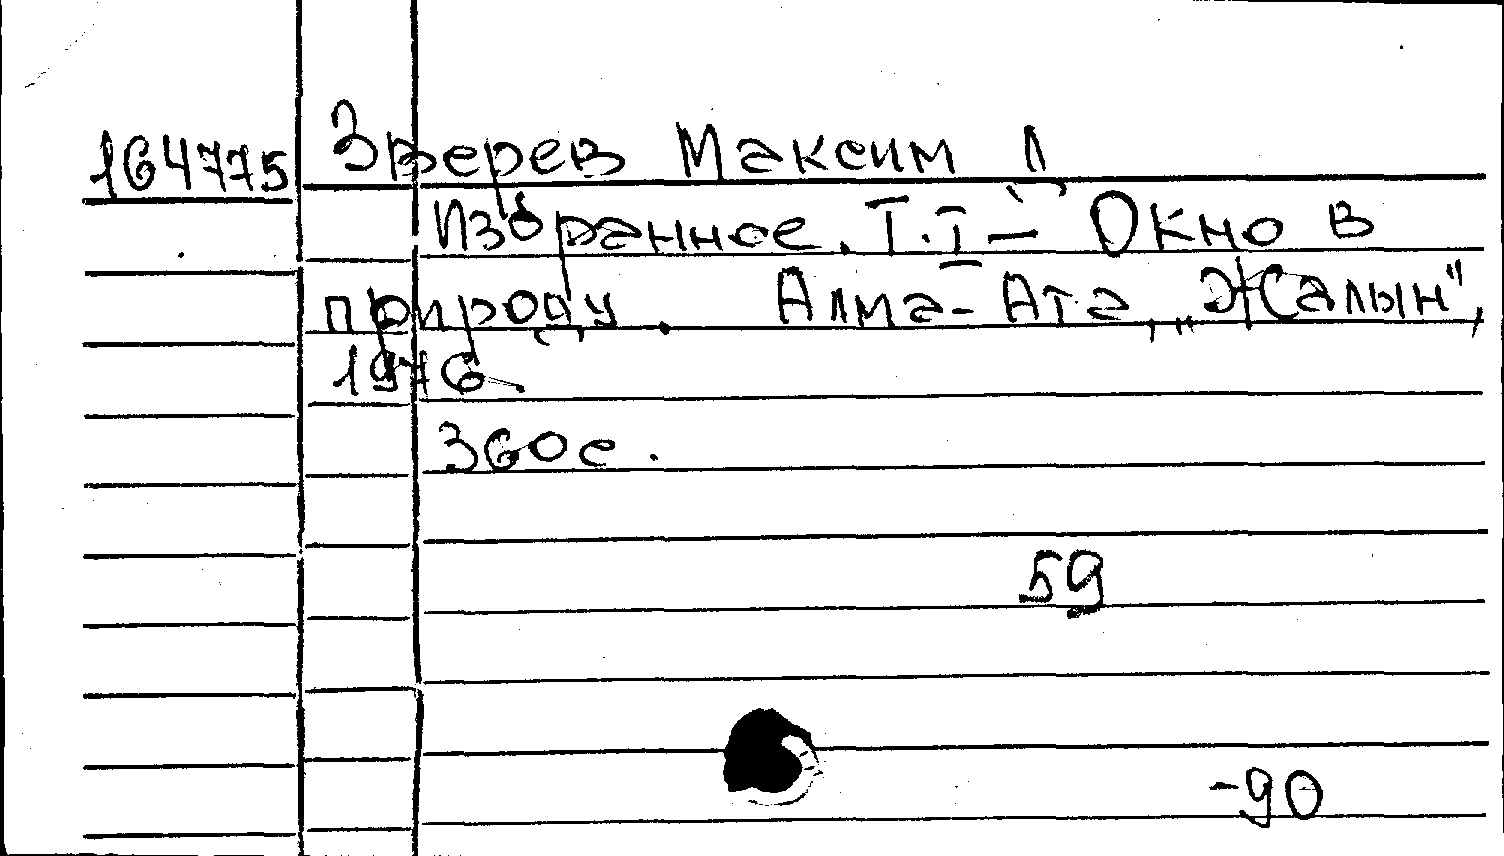 164775 Зверев Максим Д
Избранное. Т.I – Окно в
природу. Алма-Ата, „Жалын",
1976.
360 с.
59
-90